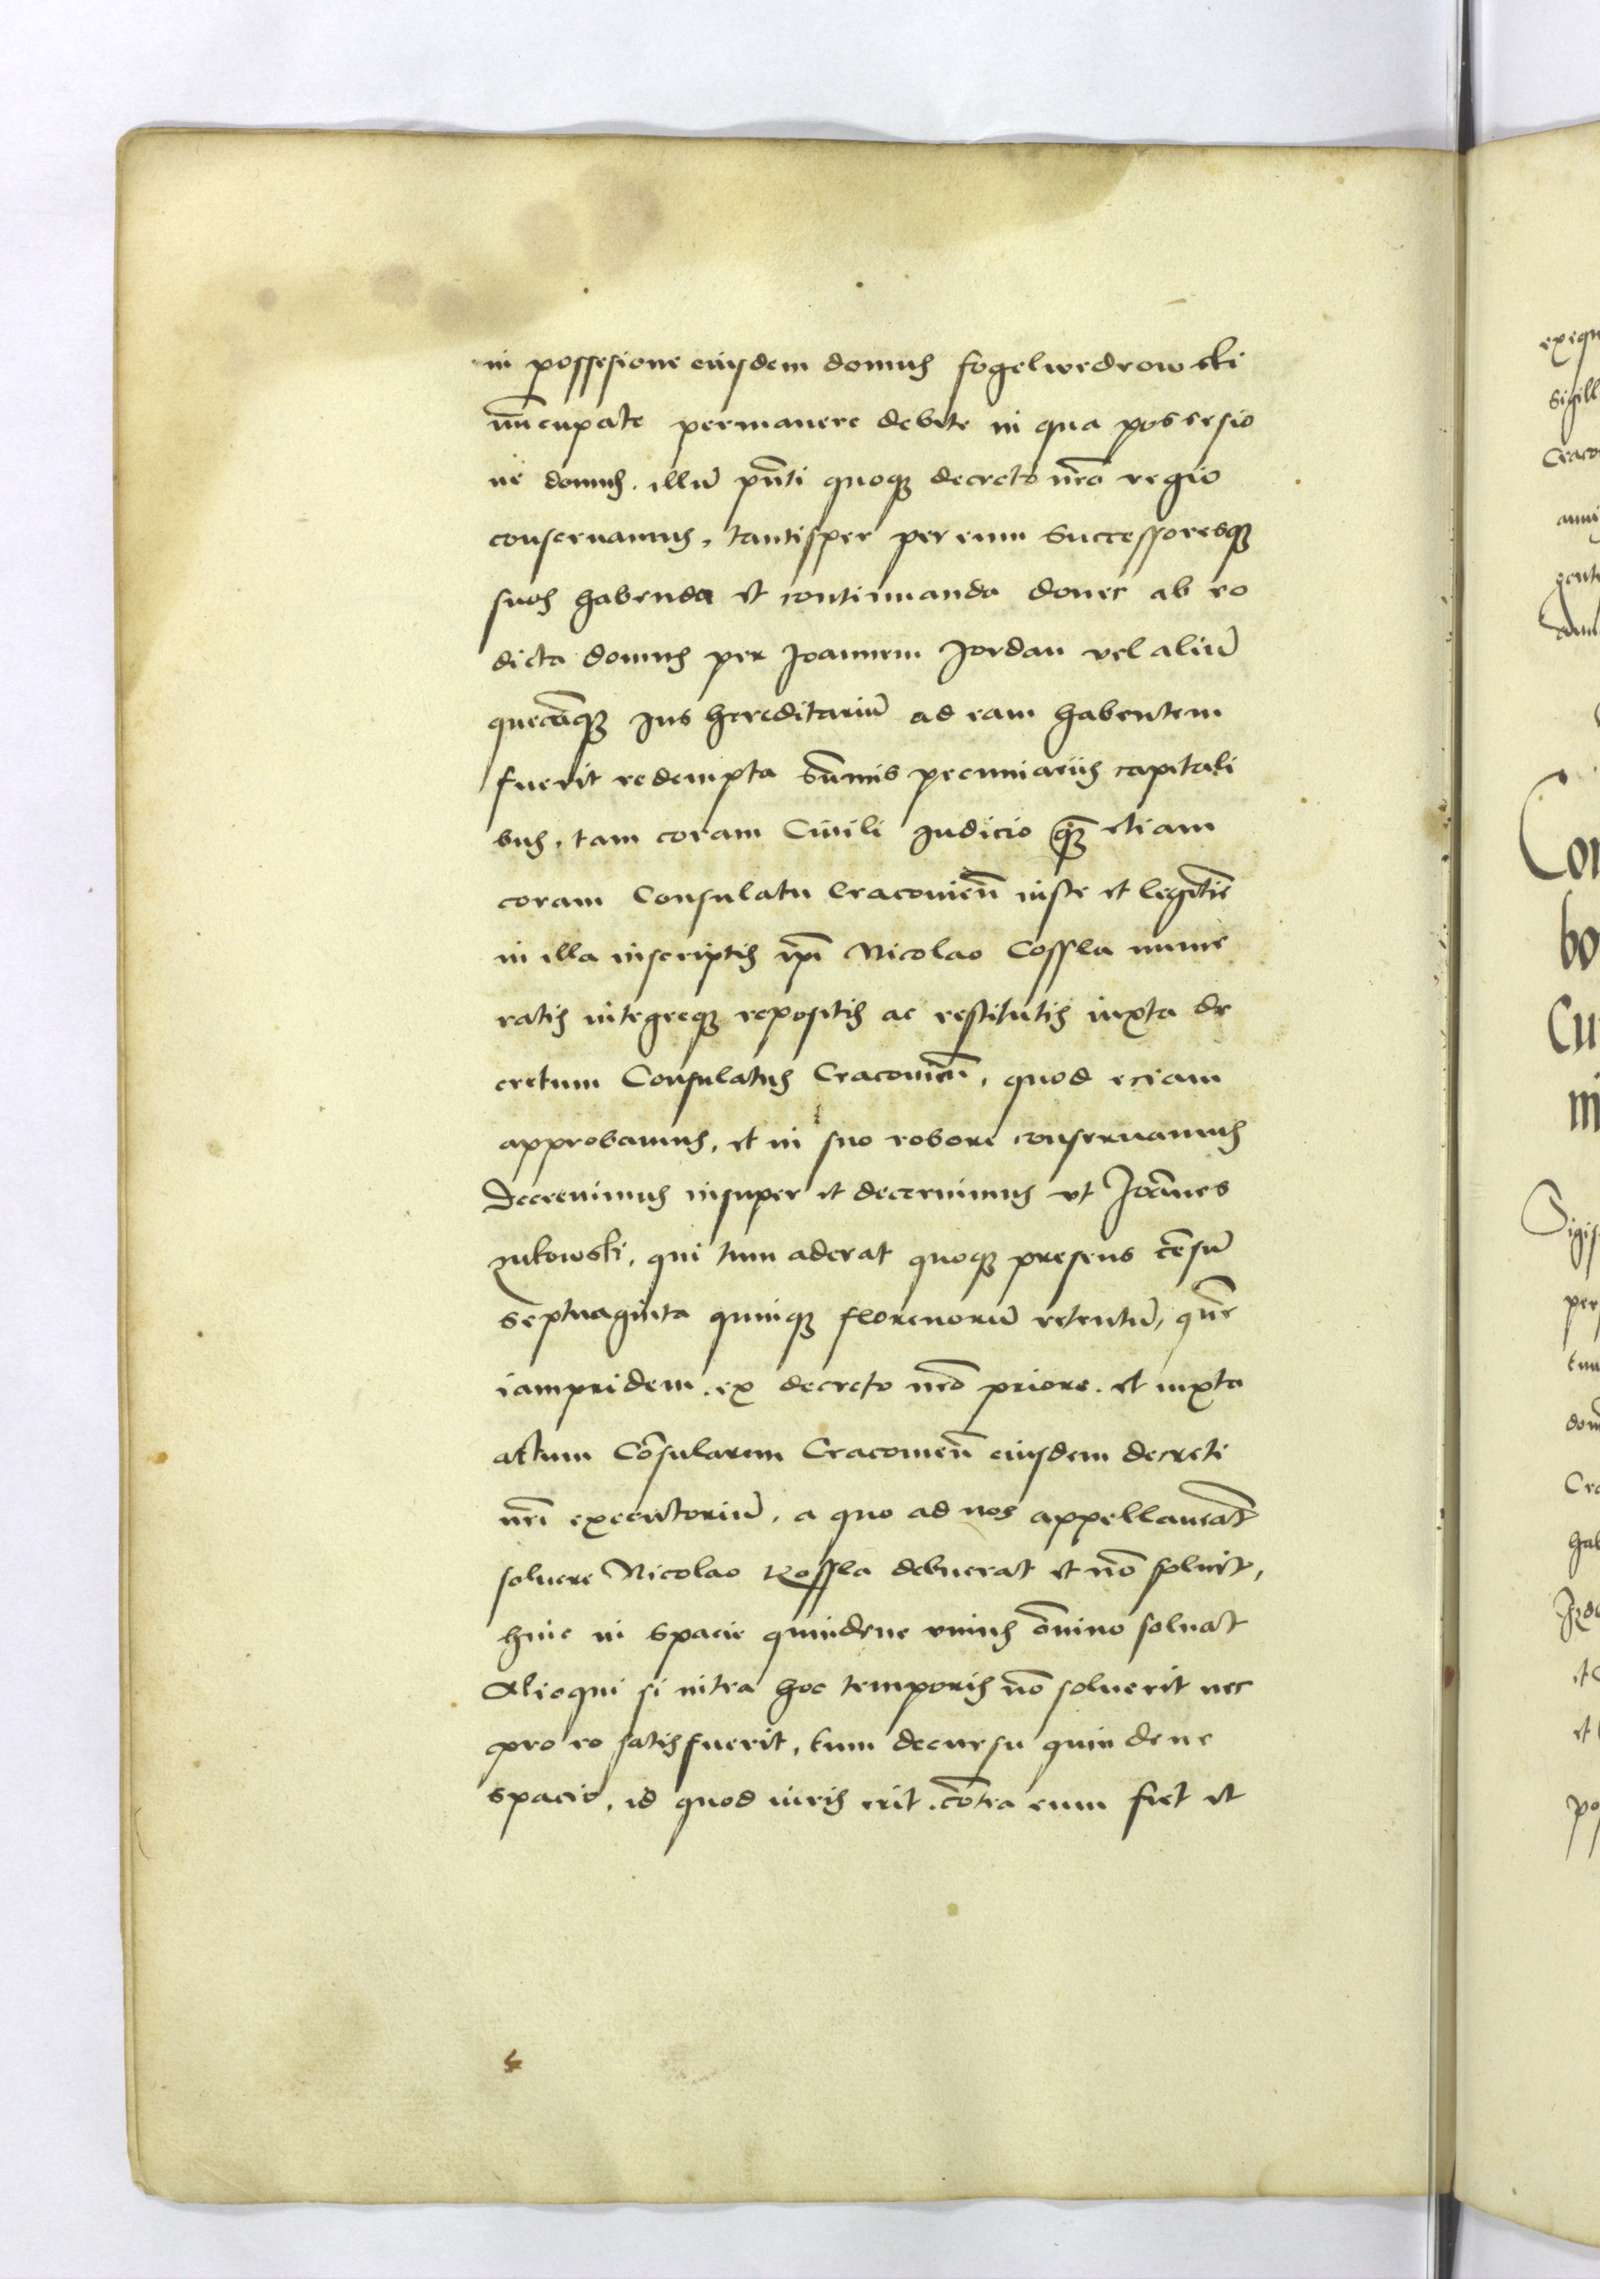 in possesione eiusdem domus fogelwedrowski
nu̅cupate permanere debite in qua possesio
ne domus. illu̅ pn̅ti quoqꝫ decreto nr̅o regio
conseruamus, tantisper per eum successoresqꝫ
suos habenda et continuanda donec ab eo
dicta domus per Joannem Jordan vel aliu̅
quecu̅qꝫ Jus hereditariu̅ ad eam habentem
fuerit redempta su̅mis pecuniariis capitali
bus, tam coram Ciuili Judicio qꝫ̅ etiam
coram Consulatu Cracouien̅ iuste et legitt̅e
in illa inscriptis ip̅i Nicolao Cossla nume
ratis integreqꝫ repositis ac restitutis iuxta de
cretum Consulatus Cracouien̅, quod eciam
approbamus, et in suo robore conseruamus
Decreuimus insuper et decernimus vt Joa̅nes
zukowski, qui tum aderat quoqꝫ presens ce̅su̅
septuaginta quinqꝫ florenoru̅ retentu̅, que̅
iampridem. ex decreto nr̅o priore. et iuxta
actum Co̅sularem Cracouien̅ eiusdem decreti
nr̅i executoriu̅, a quo ad nos appellauerat
soluere Nicolao Kossla debuerat et no̅ soluit,
huic in spacio quindene vnius o̅mino soluat
Alioqui si intra hoc temporis no̅ soluerit nec
pro eo satisfuerit, tum decursu quindene
spacio, id quod iuris erit. co̅tra eum fiet et